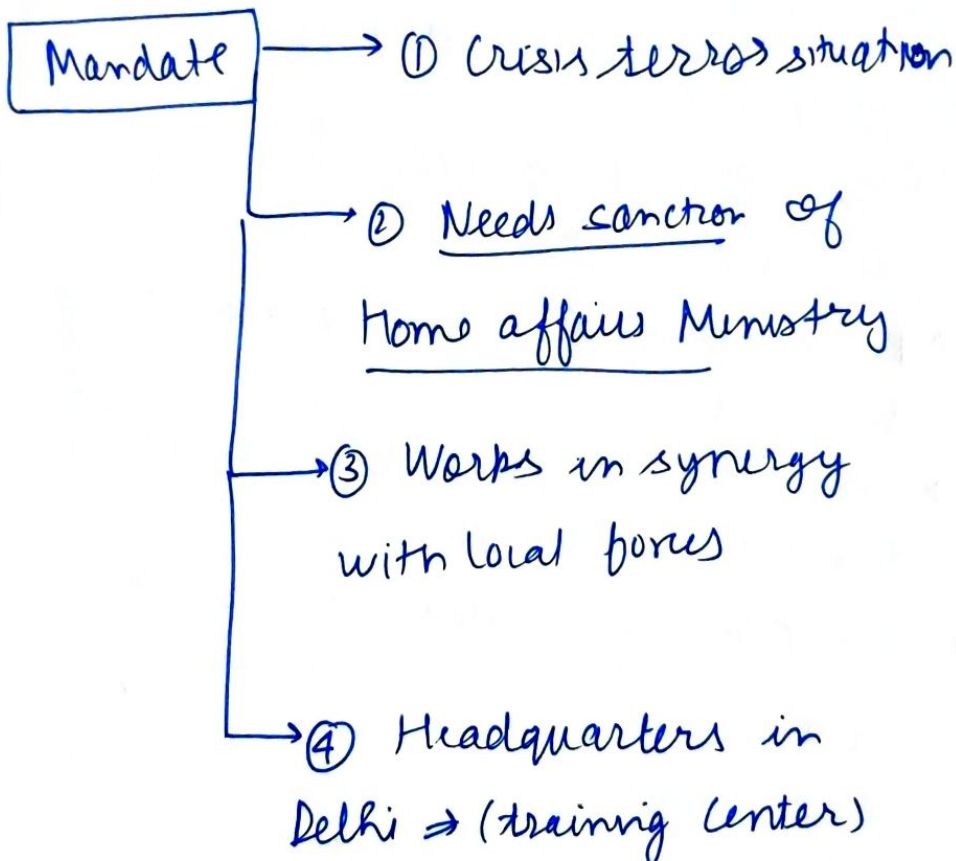 Mandate → ① Crisis terror situation
→ ② Needs sanction of
Home affairs Ministry
→ ③ Works in synergy
with local forces
→ ④ Headquarters in
Delhi ⇒ (training center)